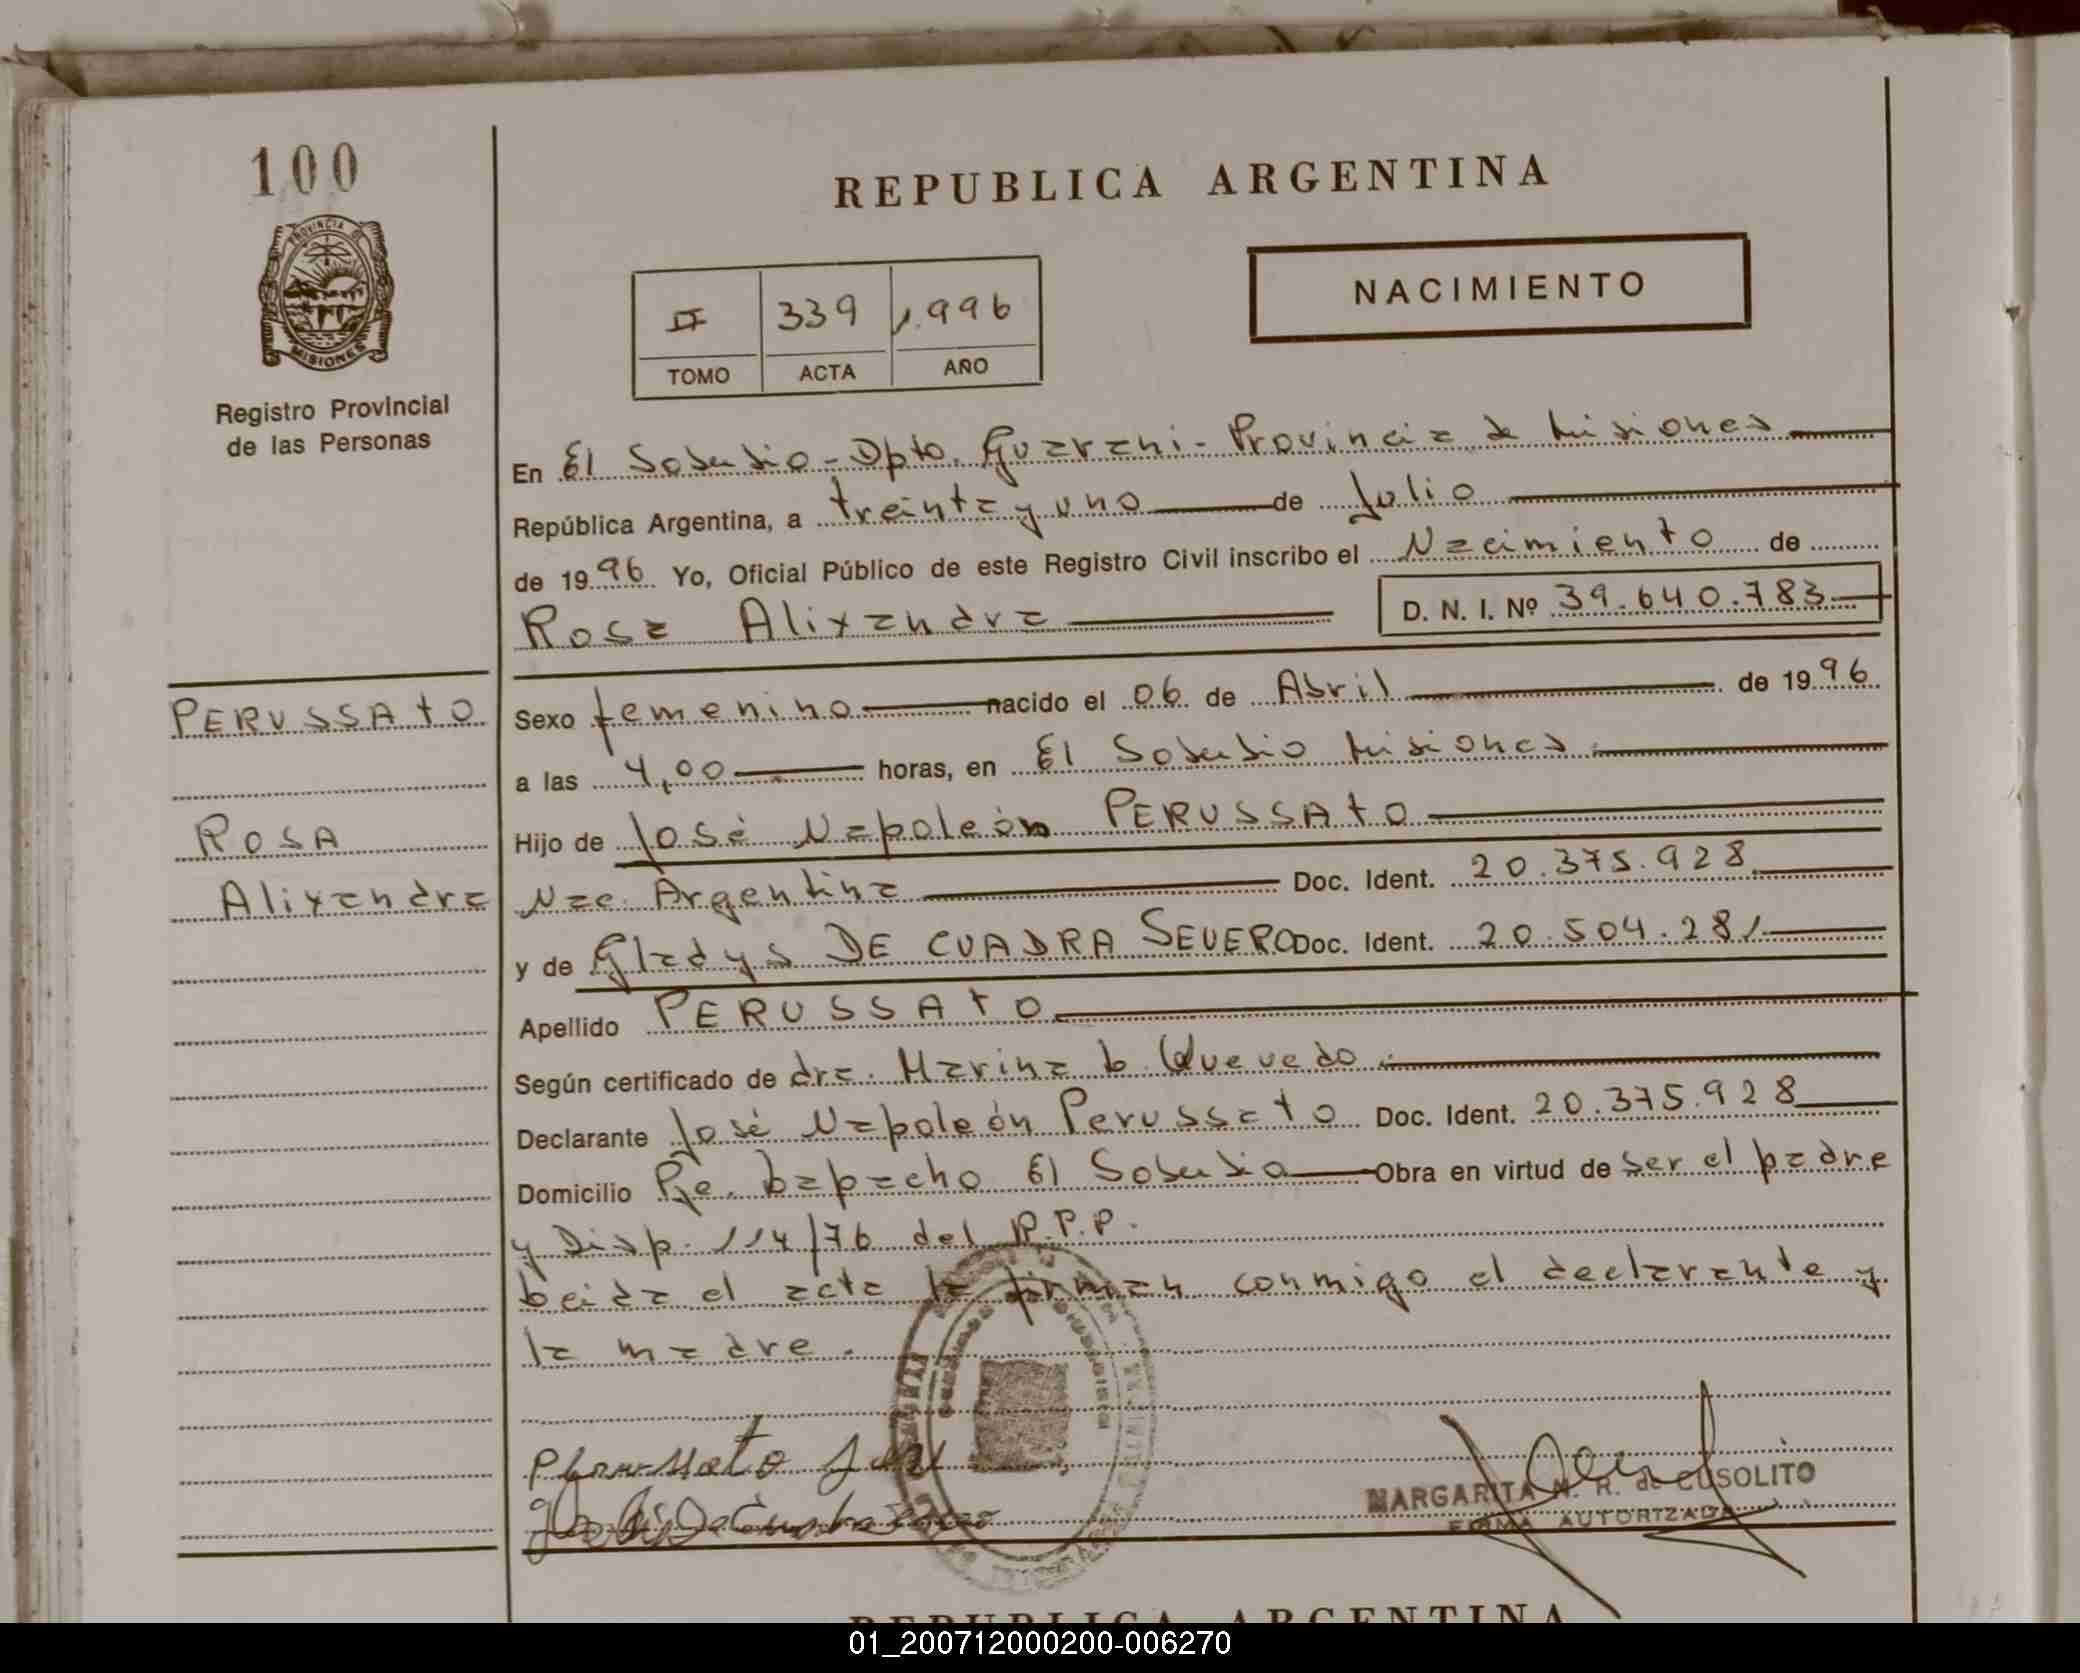 100
PROVINCIA DE
MISIONES
Registro Provincial
de las Personas
REPUBLICA ARGENTINA
II 339 1.996
TOMO ACTA AÑO
NACIMIENTO
En El Soberbio - Dpto. Guarani - Provincia de Misiones
República Argentina, a treinta y uno de Julio
de 1996 Yo, Oficial Público de este Registro Civil inscribo el Nacimiento de
Rosa Alixandra D. N. I. Nº 39.640.783
PERUSSATO
ROSA
Alixandra
Sexo femenino nacido el 06 de Abril de 1996
a las 4,00 horas, en El Soberbio Misiones
Hijo de José Napoleón PERUSSATO
Nac. Argentina Doc. Ident. 20.375.928
y de Gladys DE CUADRA SEVERO Doc. Ident. 20.504.281
Apellido PERUSSATO
Según certificado de dra. Marina L. Quevedo
Declarante José Napoleón Perussato Doc. Ident. 20.375.928
Domicilio Pje. Lapacho El Soberbio Obra en virtud de ser el padre
y Disp. 114/76 del R.P.P.
Leida el acta la firman conmigo el declarante y
la madre.
Perussato José
MARGARITA N. R. de CUSOLITO
FIRMA AUTORIZADA
REPUBLICA ARGENTINA
01_200712000200-006270